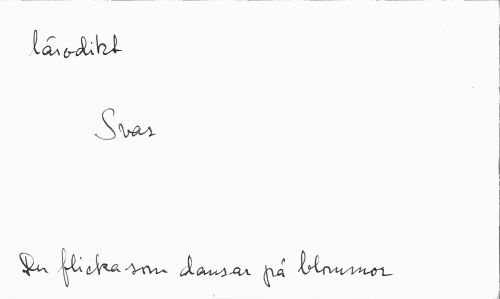 lärodikt
Svar
Du flicka som dansar på blommor